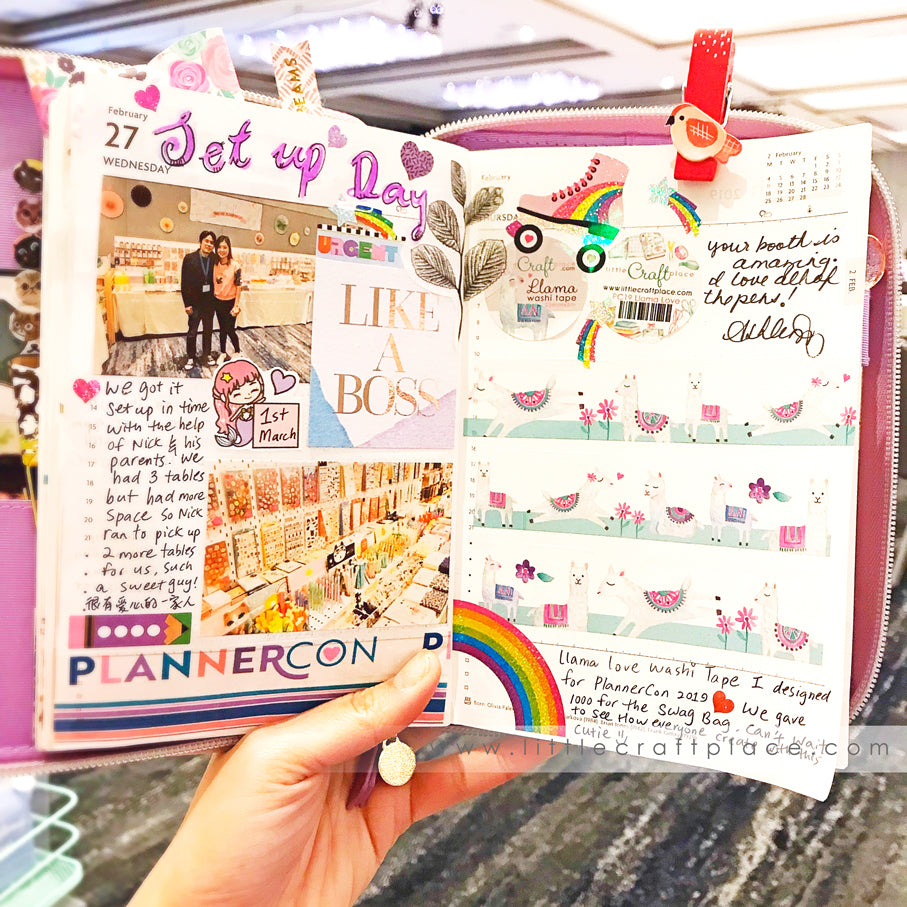 February
27
WEDNESDAY
Set up Day
URGENT
LIKE
A
BOSS
1st
March
We got it
set up in time
with the help
of Nick & his
parents. We
had 3 tables
but had more
space so Nick
ran to pick up
2 more tables
for us, such
a sweet guy!
很有爱心的一家人
PLANNERCON
P
DREAMS
February
2 February
M T W T F S S
2019
2 FEB
Craft
.com
Llama
washi tape
little
Craftplace
www.littlecraftplace.com
Llama Love
your booth is
amazing.
I love all of
the pens!
Ashley
Llama love washi Tape I designed
for PlannerCon 2019 We gave
1000 for the Swag Bag. Can't Wait
to see How everyone create with this
Cutie
www.littlecraftplace.com